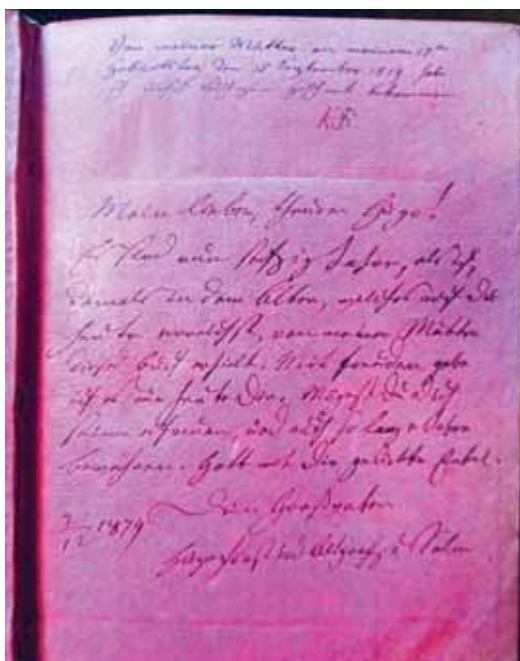 Von meiner Mutter an meinem
Geburtstag den 15 September 1819 habe
ich dieses Buch zum Geschenk bekommen
Mein lieber, theurer Hugo!
Es sind nun sechzig Jahre, als ich,
damals in dem Alter, welches auch Du
heute erreichst, von meiner Mutter
dieses Buch erhielt. Mit Freuden gebe
ich es nun heute Dir. Mögest Du Dich
seiner erfreuen und auch so lange Jahre
bewahren. Gott mit Dir geliebter Enkel.
Dein Großvater
12 1879
Hugo Fürst und Altgraf z Salm